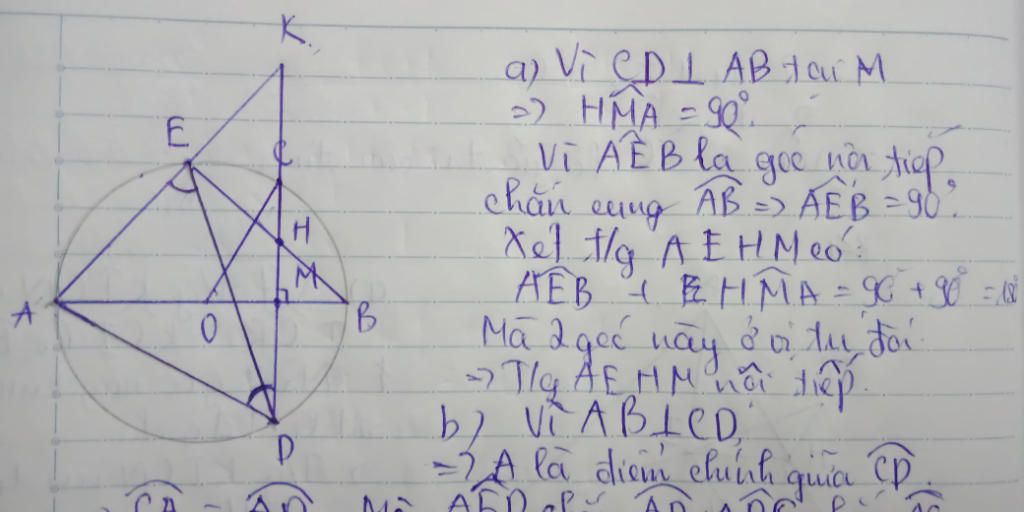 K
E
C
H
M
A
O
B
D
a) Vì CD ⊥ AB tại M
=> HMA = 90°.
Vì AEB là góc nội tiếp
chắn cung AB => AEB = 90°.
Xét t/g AEHM có:
AEB + HMA = 90° + 90° =
Mà 2 góc này ở vị trí đối
=> T/g AEHM nội tiếp.
b) Vì AB ⊥ CD,
=> A là điểm chính giữa CD.
CA = AD. Mà AED AD, ADC